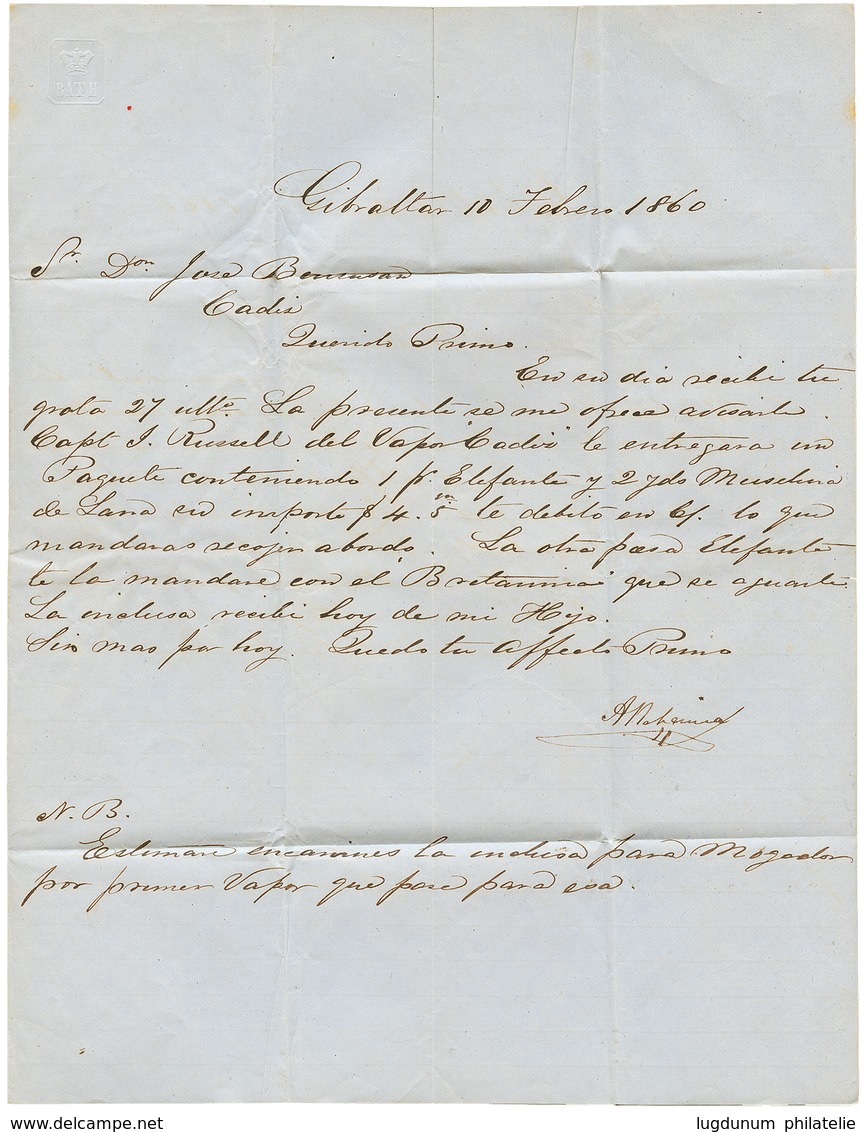 BATH
Gibraltar 10 Febrero 1860
Sr. Don Jose Bensusan
Cadiz
Querido Primo.
En su dia recibi tu
grata 27 ulto. La presente se me ofrece avisarte
Capt J. Russell del Vapor "Cadiz" le entregara un
Paquete conteniendo 1 ps. Elefante y 2 yds Muselina
de Lana su importe $ 4. 5 te debito en C/. lo que
mandaras recojer abordo. La otra pesa Elefante
te la mandare con el "Britannia" que se aguarda
La inclusa recibi hoy de mi Hijo.
Sin mas por hoy. Quedo tu Affecto Primo
N. B.
Estimare encamines la inclusa para Mogador
por primer Vapor que pase para esa.
delcampe.net
lugdunum philatelie